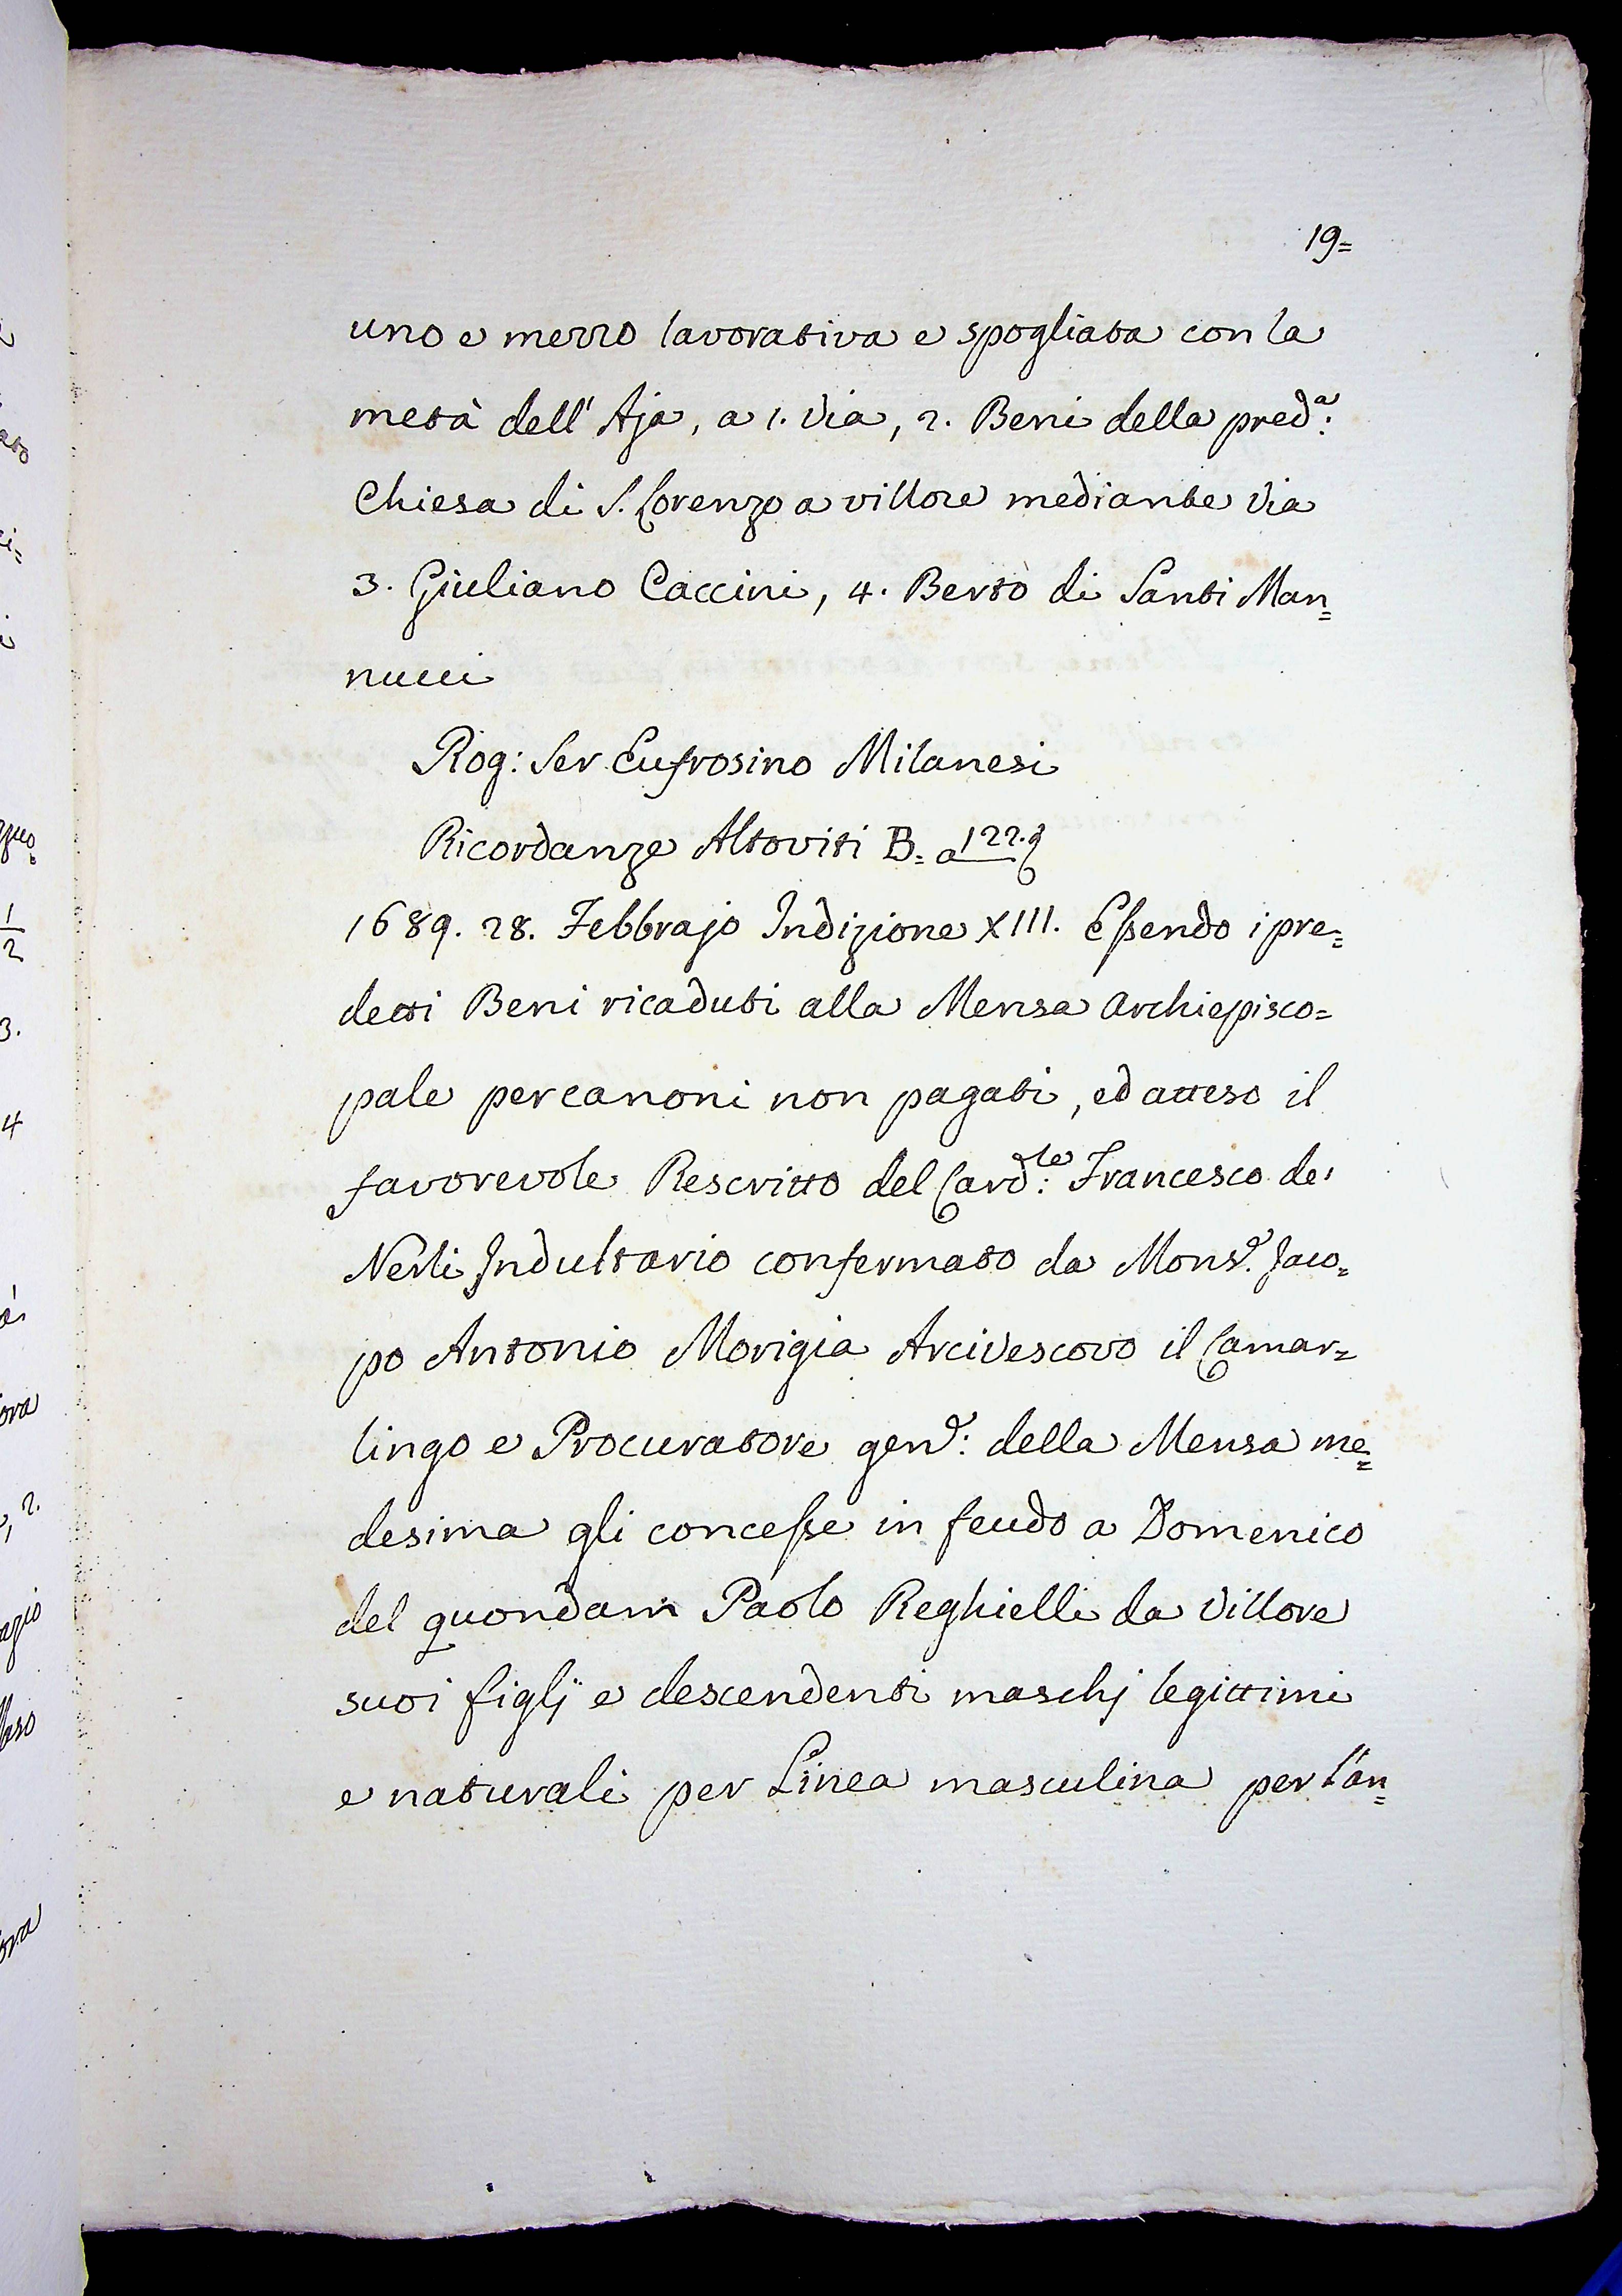 19=
uno e mezzo lavorativa e spogliata con la
metà dell' Aja, a 1. Via, 2. Beni della pred.ª:
Chiesa di S. Lorenzo a villore mediante Via
3. Giuliano Caccini, 4. Berto di Santi Man=
nucci
Rog: Ser Eufrosino Milanesi
Ricordanze Altoviti B= a 122.
1689. 28. Febbrajo Indizione XIII. Essendo i pre=
detti Beni ricaduti alla Mensa Archiepisco=
pale per canoni non pagati, ed atteso il
favorevole Rescritto del Card.le: Francesco de'
Nerli Indultario confermato da Mons.r Jaco=
po Antonio Morigia Arcivescovo il Camar=
lingo e Procuratore gen.e: della Mensa me=
desima gli concesse in feudo a Domenico
del quondam Paolo Reghielli da Villore
suoi figlj e descendenti maschj legittimi
e naturali per Linea masculina per l'an=